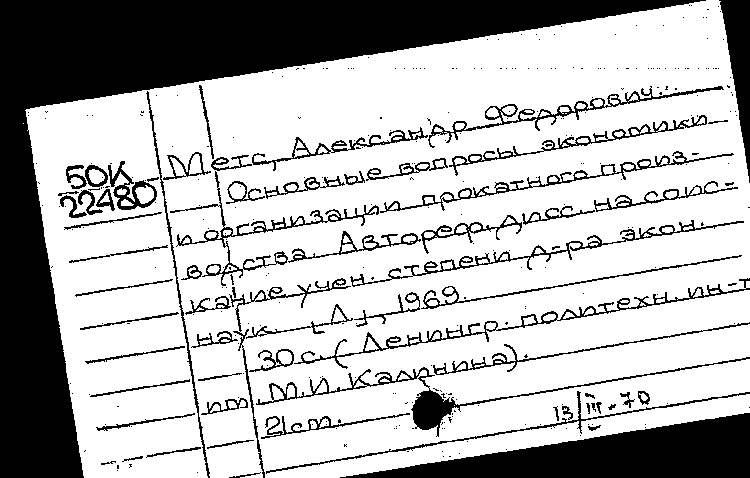 50К
22480
Метс, Александр Федорович...
Основные вопросы экономики
и организации прокатного произ-
водства. Автореф. дисс. на соис-
кание учен. степени д-ра экон.
наук. [Л.], 1969.
30 с. (Ленингр. политехн. ин-т
им. М.И. Калинина).
21 см.
13/III-70